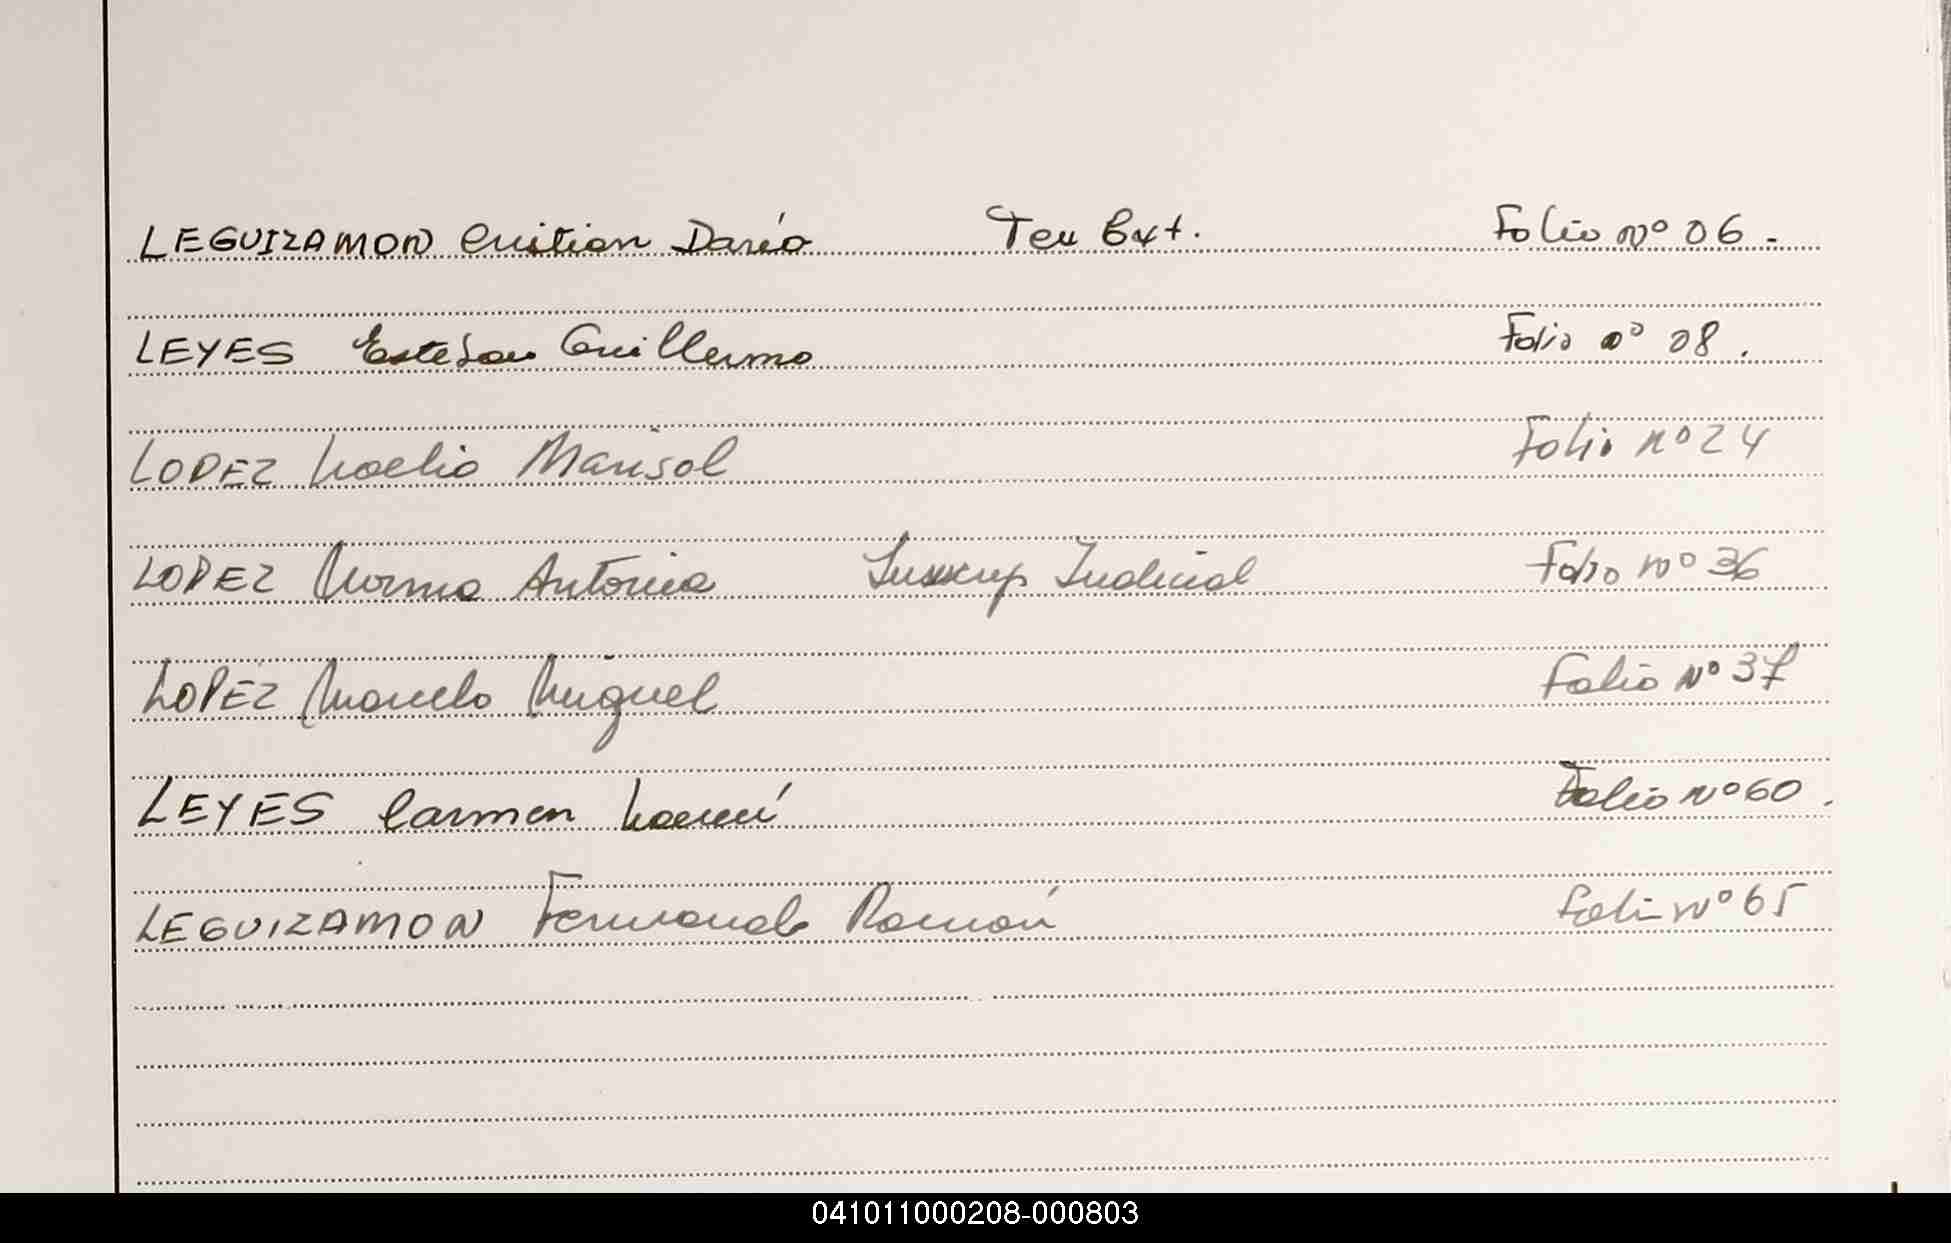 LEGUIZAMON Cristian Darío Ten Ext. Folio Nº 06.
LEYES Esteban Guillermo Folio nº 08.
LOPEZ Noelia Marisol Folio nº 24
LOPEZ Norma Antonia Inscrip Judicial Folio nº 36
LOPEZ Marcelo Miguel Folio Nº 37
LEYES Carmen Noemí Folio Nº 60.
LEGUIZAMON Fernando Ramón Folio Nº 65
041011000208-000803